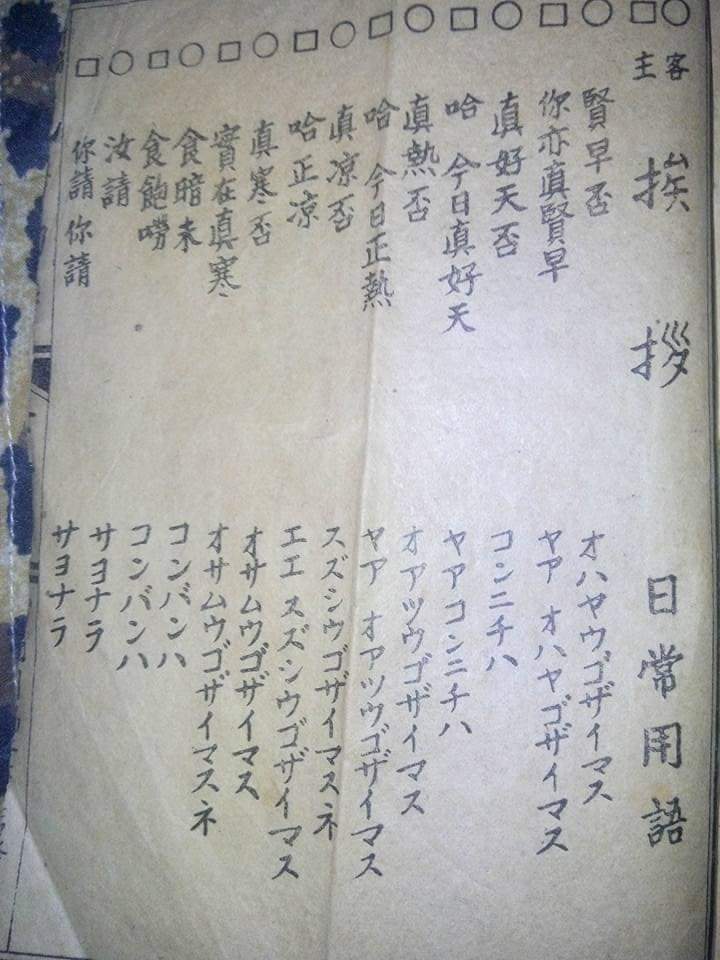 客○
主□
挨拶 日常用語
○ 賢早否 オハヤウゴザイマス
□ 你亦真賢早 ヤア オハヤゴザイマス
○ 真好天否 コンニチハ
□ 哈 今日真好天 ヤアコンニチハ
○ 真熱否 オアツウゴザイマス
□ 哈 今日正熱 ヤア オアツウゴザイマス
○ 真凉否 スズシウゴザイマスネ
□ 哈正凉 エエスズシウゴザイマス
○ 真寒否 オサムウゴザイマス
□ 實在真寒 オサムウゴザイマスネ
○ 食暗未 コンバンハ
□ 食飽嘮 コンバンハ
○ 汝請 サヨナラ
□ 你請你請 サヨナラ